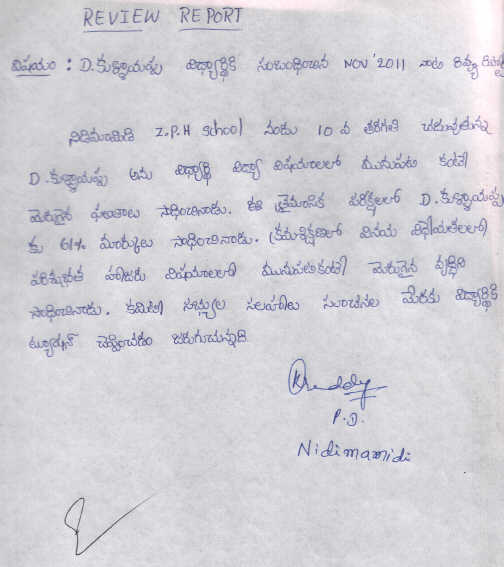 REVIEW REPORT
విషయం : D.కుళ్ళాయప్ప విద్యార్థికి సంబంధించిన NOV'2011 నాటి రివ్యూ రిపోర్ట్
నిడిమామిడి Z.P.H school నందు 10 వ తరగతి చదువుతున్న
D.కుళ్ళాయప్ప అను విద్యార్థి విద్యా విషయాలలో మునుపటి కంటే
మెరుగైన ఫలితాలు సాధించినాడు. ఈ త్రైమాసిక పరీక్షలలో D.కుళ్ళాయప్ప
కు 61% మార్కులు సాధించినాడు. క్రమశిక్షణలో వినయ విధేయతలలో
పరిశుభ్రత హాజరు విషయాలలో మునుపటికంటే మెరుగైన వృద్ధిని
సాధించినాడు. కమిటీ సభ్యుల సలహాలు సూచనల మేరకు విద్యార్థికి
ట్యూషన్ చెప్పించడం జరుగుచున్నది.
Kreddy
P.D.
Nidimamidi